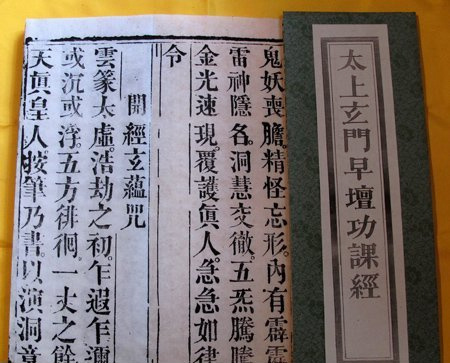 太上玄門早壇功課經
鬼妖喪膽。精怪忘形。內有霹靂
雷神隱名。洞慧交徹。五炁騰
金光速現。覆護真人。急急如律
令
開經玄蘊咒
雲篆太虛。浩劫之初。乍遐乍邇
或沉或浮。五方徘徊。一丈之餘
天真皇人。按筆乃書。以演洞章